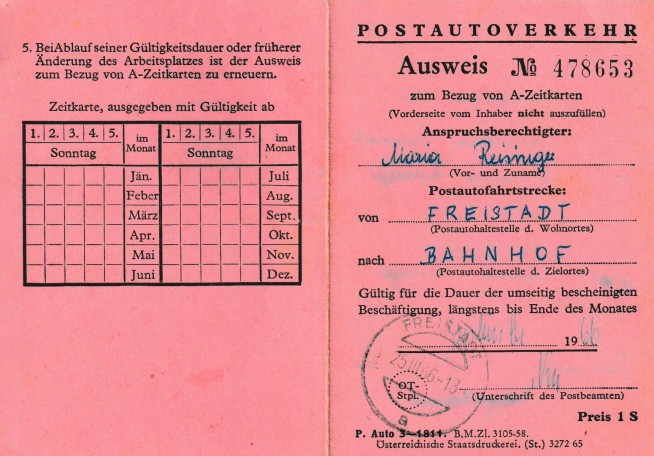 5. BeiAblauf seiner Gültigkeitsdauer oder früherer
Änderung des Arbeitsplatzes ist der Ausweis
zum Bezug von A-Zeitkarten zu erneuern.
Zeitkarte, ausgegeben mit Gültigkeit ab
1. 2. 3. 4. 5. im Monat 1. 2. 3. 4. 5. im Monat
Sonntag Sonntag
Jän. Juli
Feber Aug.
März Sept.
Apr. Okt.
Mai Nov.
Juni Dez.
POSTAUTOVERKEHR
Ausweis № 478653
zum Bezug von A-Zeitkarten
(Vorderseite vom Inhaber nicht auszufüllen)
Anspruchsberechtigter:
Maria Reisinger
(Vor- und Zuname)
Postautofahrtstrecke:
von FREISTADT
(Postautohaltestelle d. Wohnortes)
nach BAHNHOF
(Postautohaltestelle d. Zielortes)
Gültig für die Dauer der umseitig bescheinigten
Beschäftigung, längstens bis Ende des Monates
1966
FREISTADT
OT-
Stpl.
a
(Unterschrift des Postbeamten)
Preis 1 S
P. Auto 3—1811. B.M.Zl. 3105-58.
Österreichische Staatsdruckerei. (St.) 3272 65